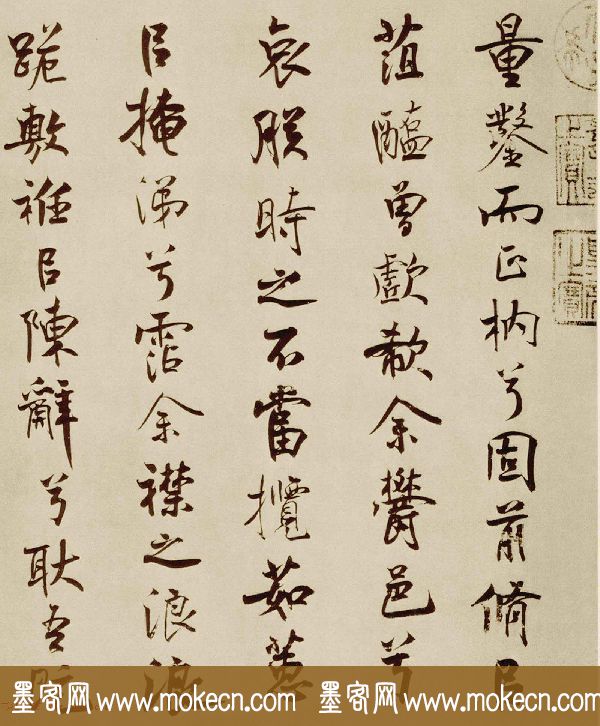 量鑿而正枘兮固前脩㠯
菹醢曾歔欷余鬱邑兮
哀朕時之不當攬茹蕙
㠯掩涕兮霑余襟之浪浪
跪敷衽㠯陳辭兮耿吾既
墨客网 www.mokecn.com 墨客网 www.mokecn.com 墨客网 www.mokecn.com